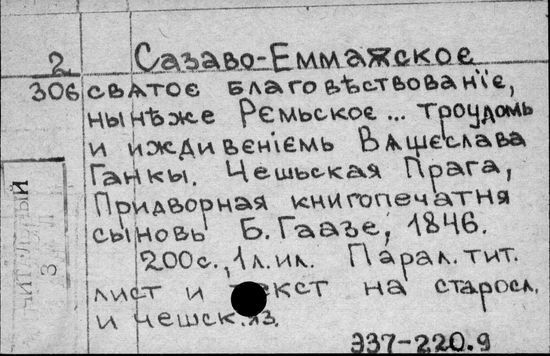 2
306
Сазаво-Еммаѫскоє
сватоє благовѣствованїє,
нынѣже Рємьскоє... троудомь
и иждивєнїємь Вашєслава
Ганкы. Чєшьская Прага,
Придворная книгопечатня
сыновь Б. Гаазе, 1846.
200с., 1л. ил. Парал. тит.
лист и текст на старосл.
и чешск. яз.
Э37-220.9